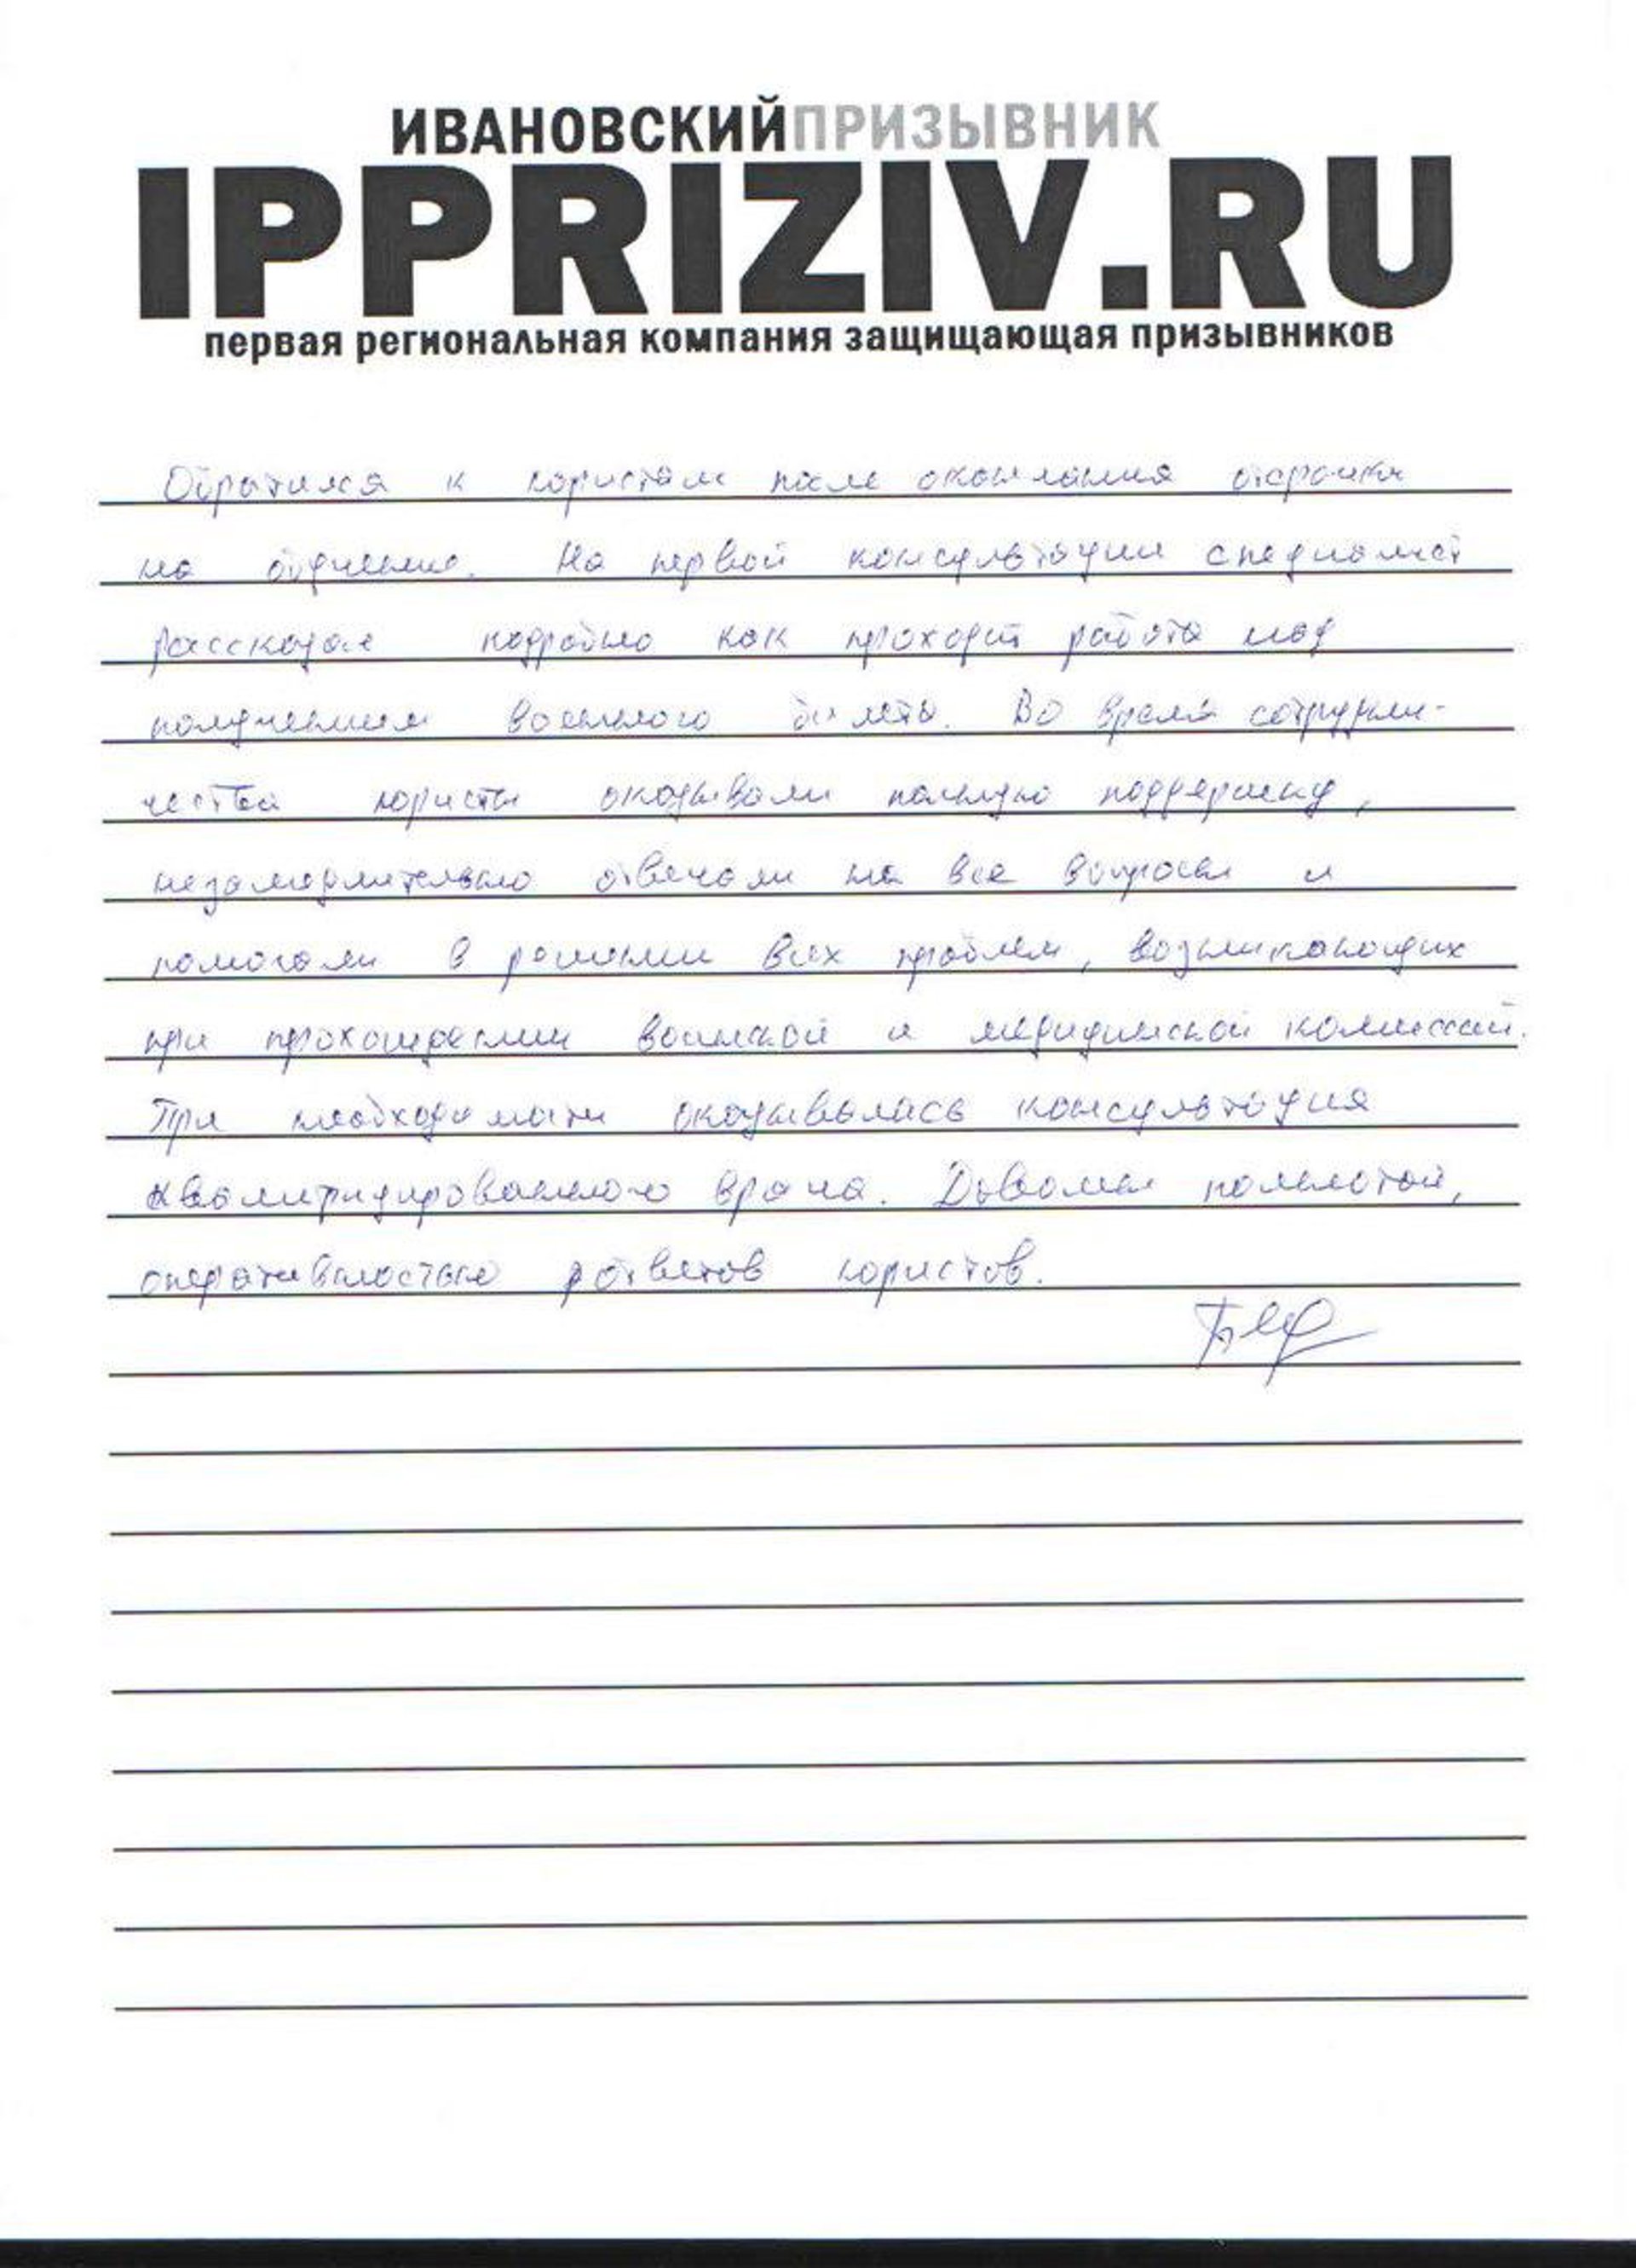 ИВАНОВСКИЙПРИЗЫВНИК
IPPRIZIV.RU
первая региональная компания защищающая призывников
Обратился к юристам после окончания отсрочки
на обучение. На первой консультации специалист
рассказал подробно как проходит работа над
получением военного билета. Во время сотрудни-
чества юристы оказывали полную поддержку,
незамедлительно отвечали на все вопросы и
помогали в решении всех проблем, возникающих
при прохождении воинской и медицинской комиссий.
При необходимости оказывалась консультация
квалифицированного врача. Довольны полнотой,
оперативностью ответов юристов.